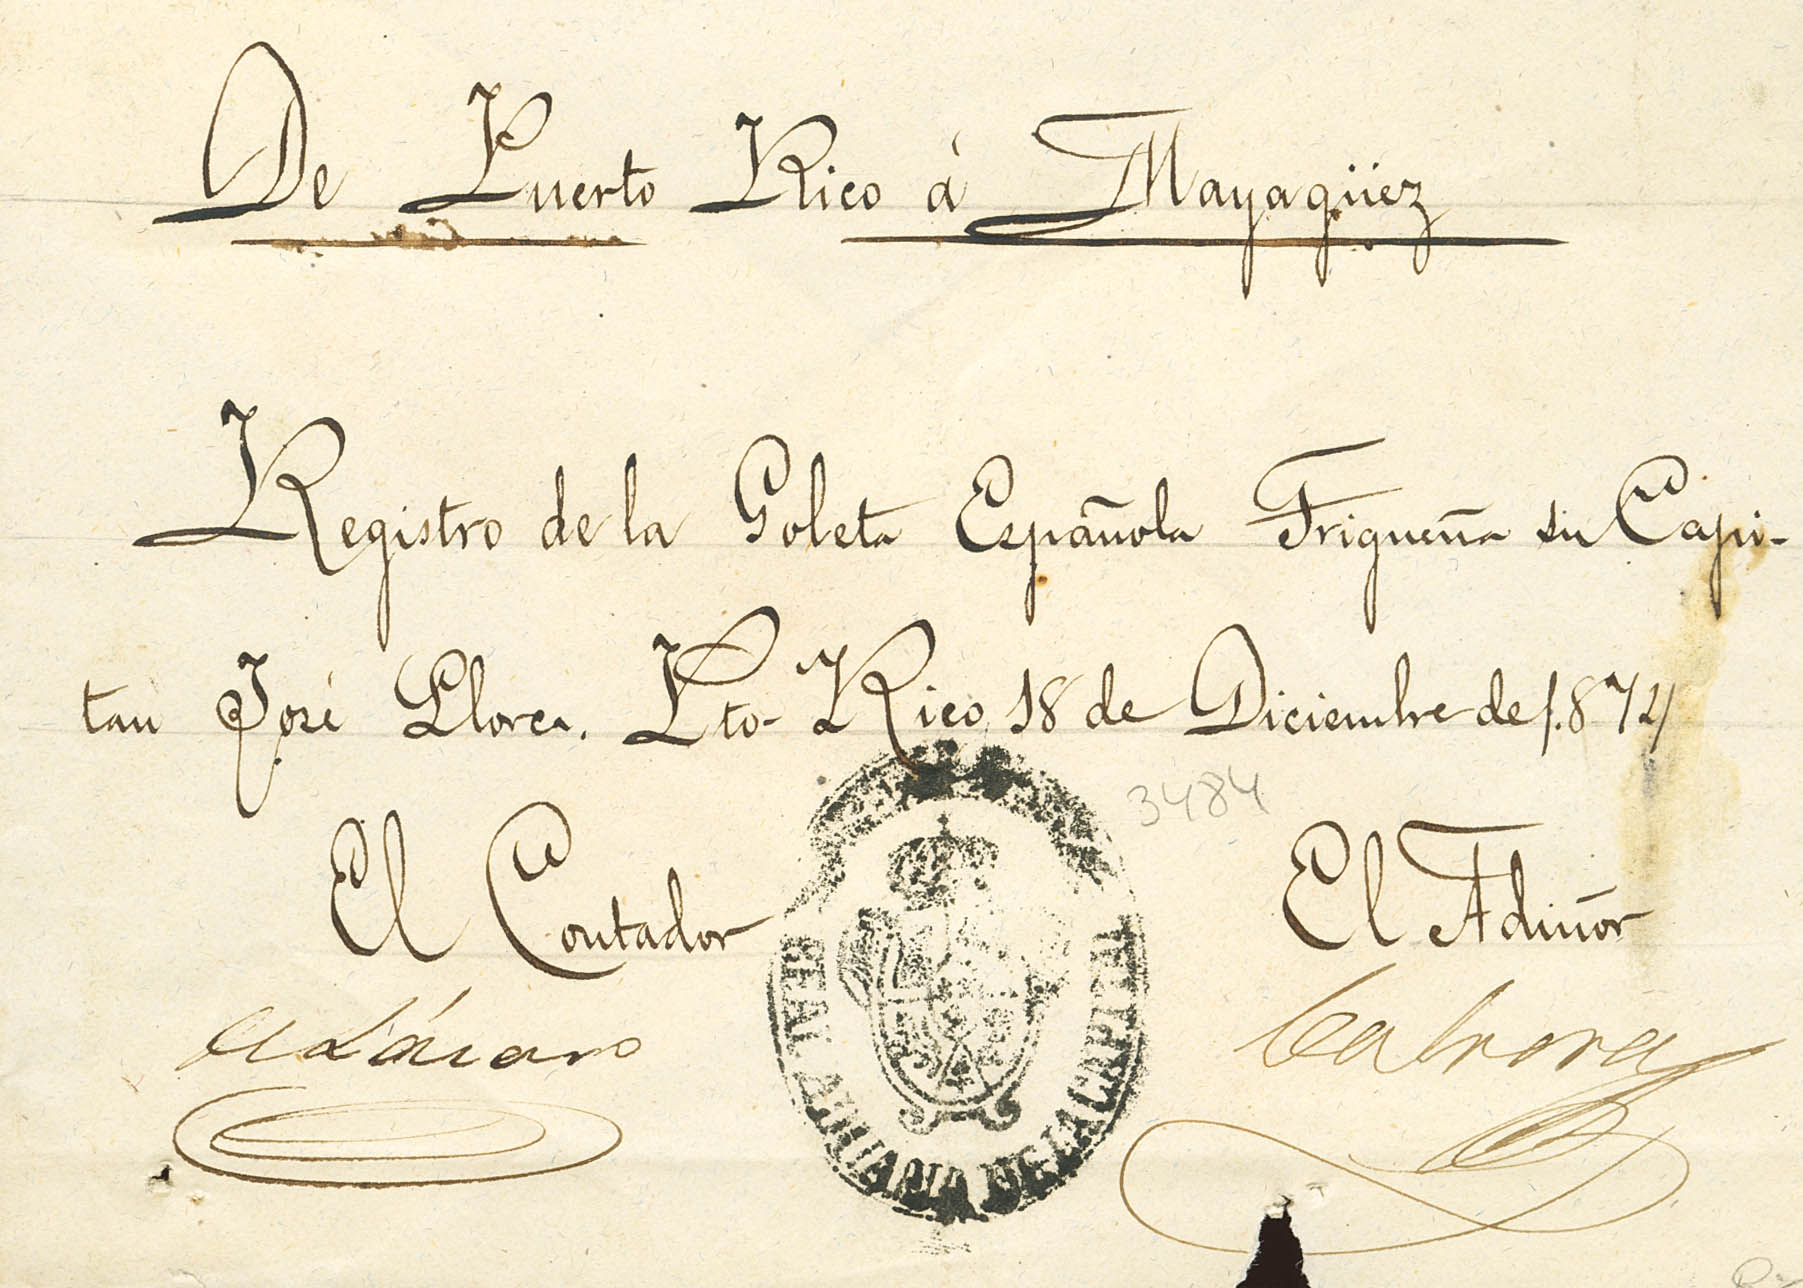 De Puerto Rico á Mayagüez
Registro de la Goleta Española Trigueña su Capi-
tan José Llorca. Pto- Rico 18 de Diciembre de 1.874
3484
El Contador
El Admor
Cabrera
REAL ADUANA DE LA CAPITAL